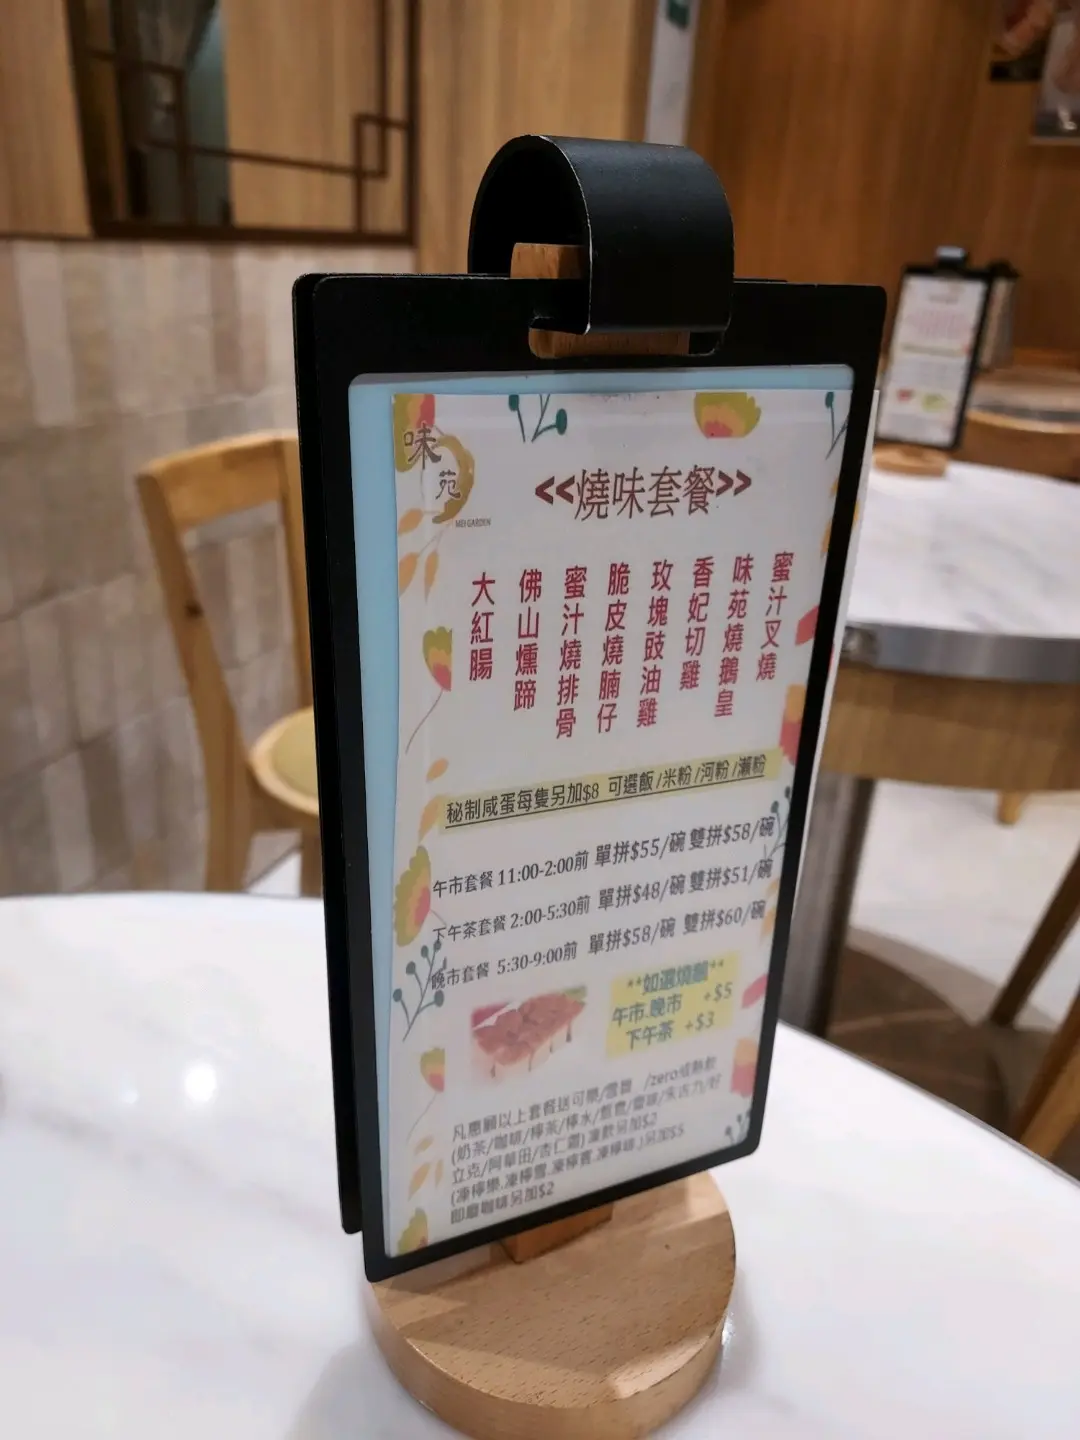 味
苑
MEI GARDEN
<<燒味套餐>>
蜜汁叉燒
味苑燒鵝皇
香妃切雞
玫塊豉油雞
脆皮燒腩仔
蜜汁燒排骨
佛山燻蹄
大紅腸
秘制咸蛋每隻另加$8 可選飯/米粉/河粉/瀨粉
午市套餐 11:00-2:00前 單拼$55/碗 雙拼$58/碗
下午茶套餐 2:00-5:30前 單拼$48/碗 雙拼$51/碗
晚市套餐 5:30-9:00前 單拼$58/碗 雙拼$60/碗
**如選燒鵝**
午市.晚市 +$5
下午茶 +$3
凡惠顧以上套餐送可樂/雪碧 /zero或熱飲
(奶茶/咖啡/檸茶/檸水/
立克/阿華田/杏仁霜) 凍飲另加$2
(凍檸樂.凍檸雪.凍檸賓.凍檸啡.)另加$5
即磨咖啡另加$2